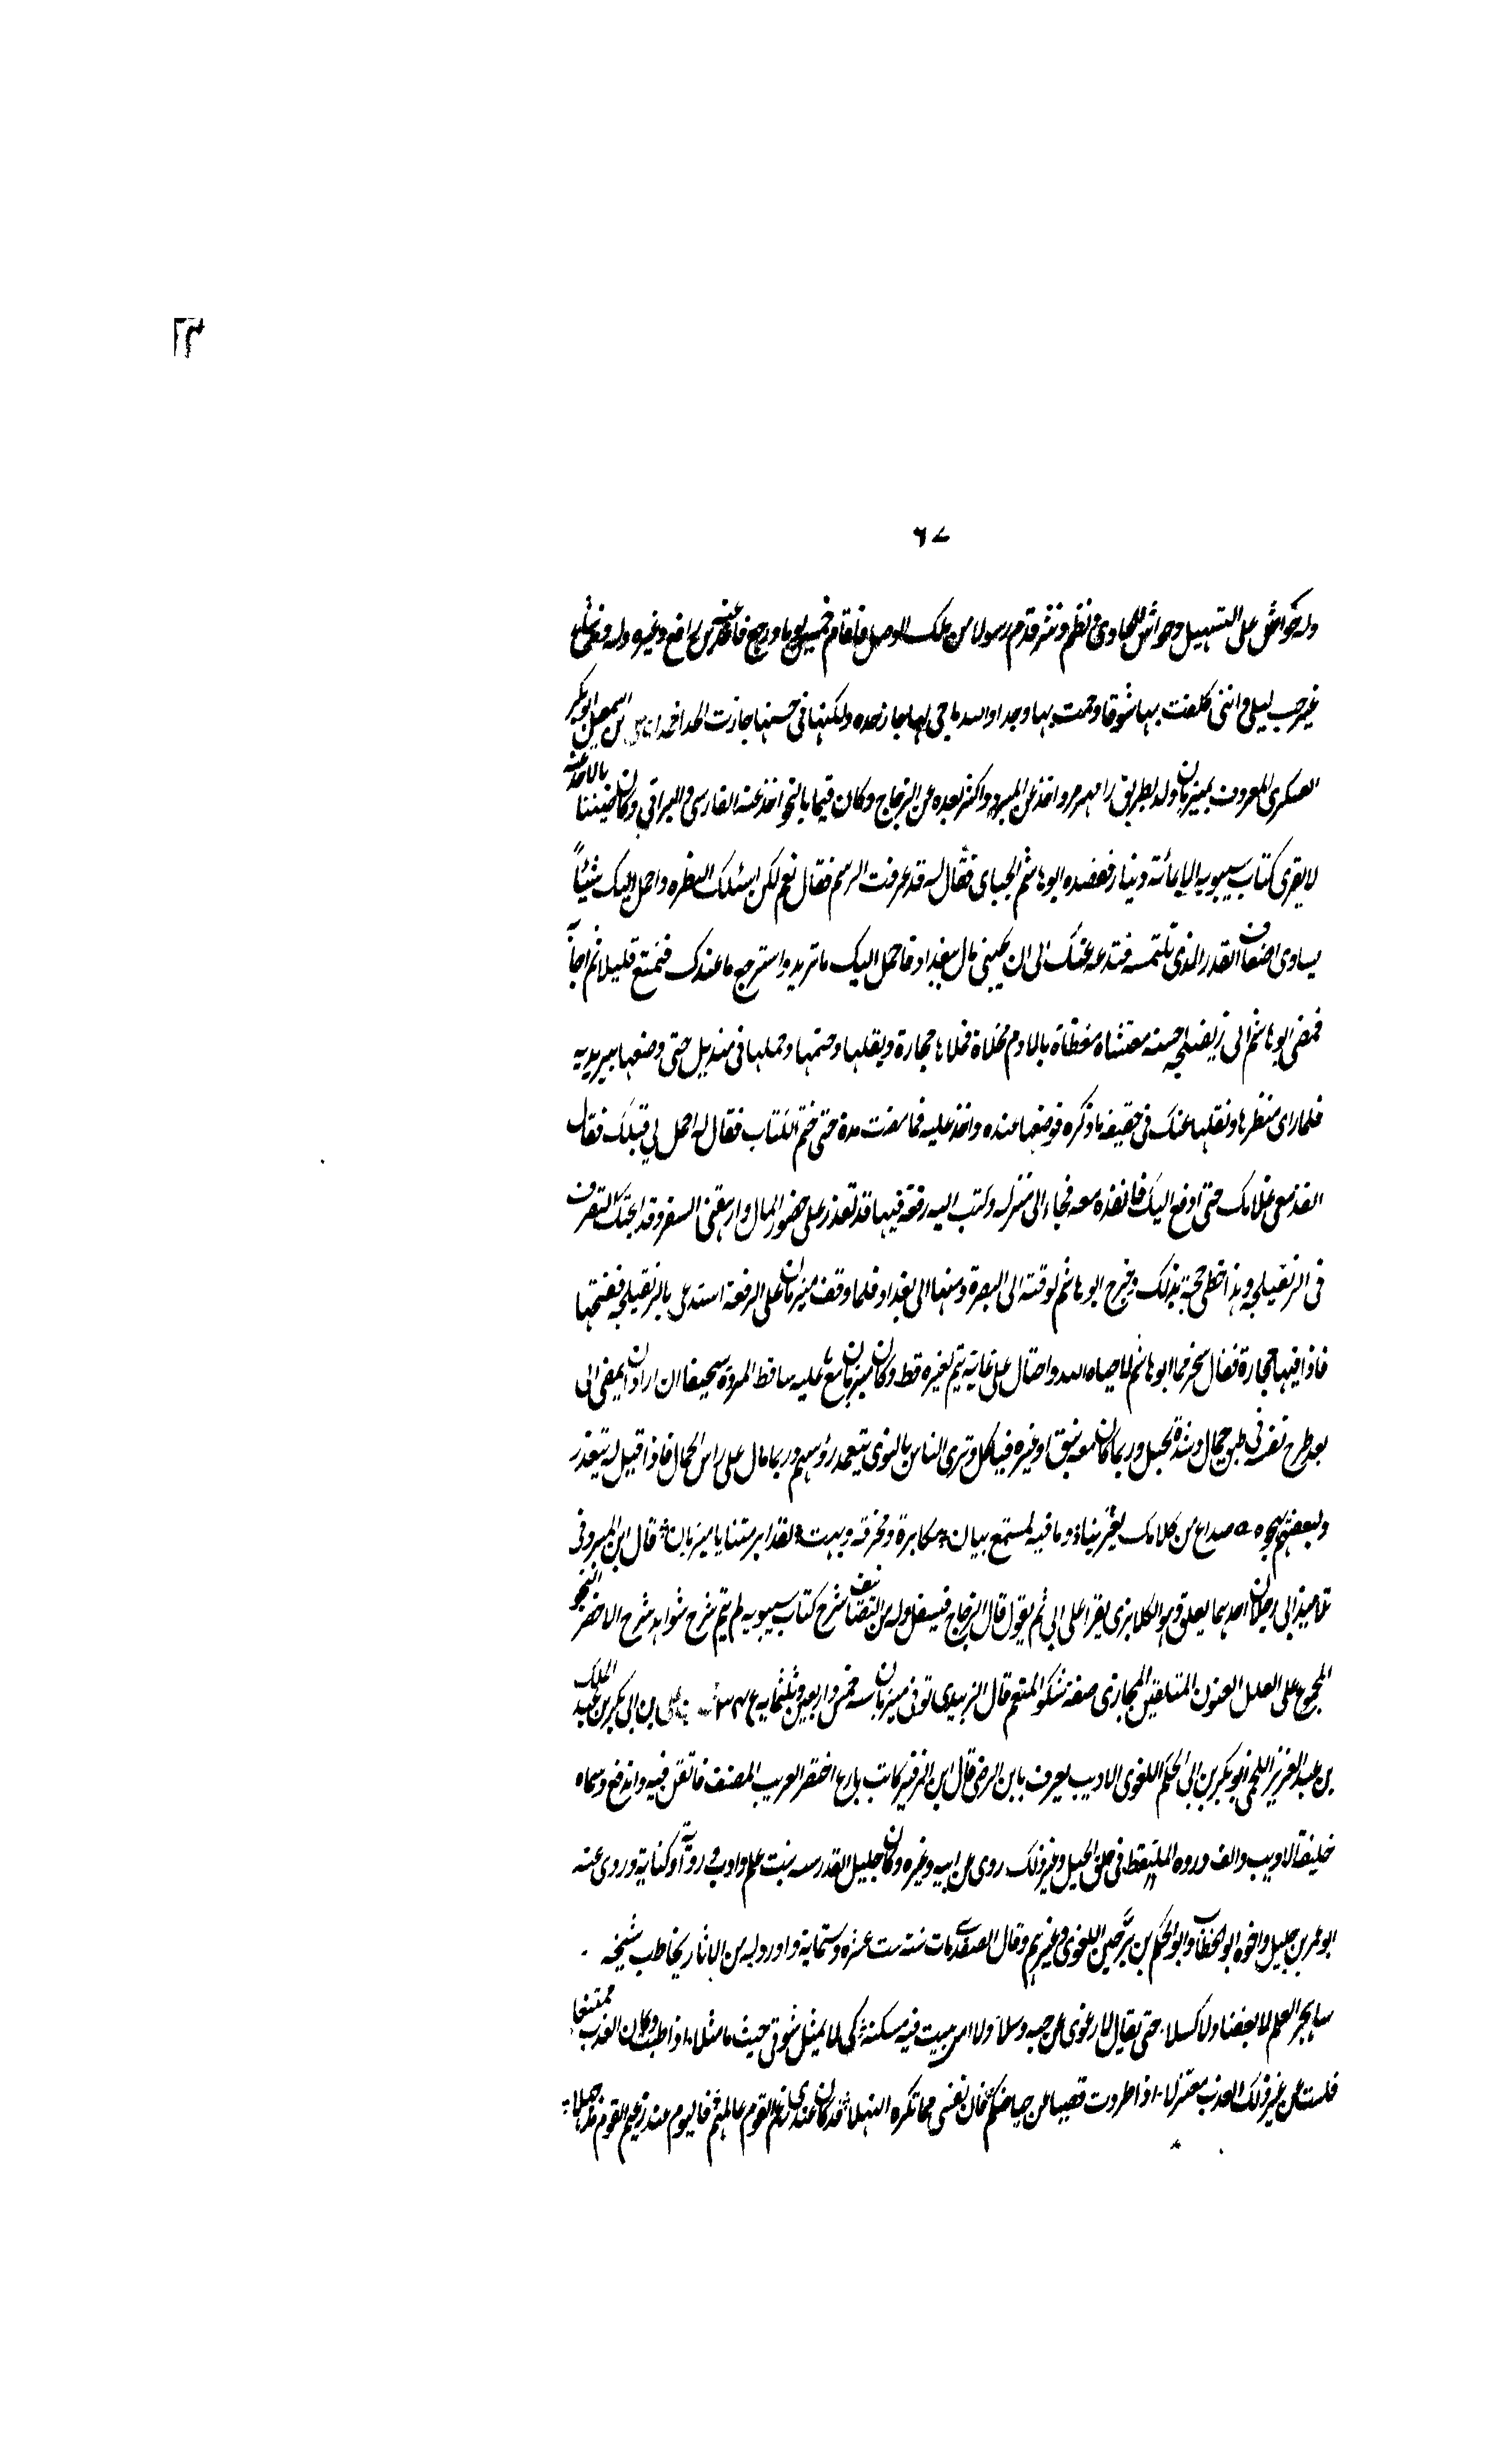 ٦٧
وله حواش على التسهيل وحواش للحاوى ونظم ونثر قدم رسولا من ملك الموصل فاقام خمسين يوما ورجع وغيره وله
غير حب ليلى وانني كلفت بها شوقا وهمت بها وجدا والله ما حبي لها جاز حده ولكنها في حسنها جازت الحد بن اسمعيل ابو بكر
العسكرى المعروف بمبرمان ولد بطريق رامهرمز واخذ عن المبرد واكثر بعده عن الزجاج وكان قيما بالنحو اخذ عنه الفارسى والسيرافى وكان ضنينا بالاخذ عنه
لا يقرى كتاب سيبويه الا بمائة دينار فقصده ابو هاشم الجبائى فقال له قد عرفت الرسم فقال نعم لكن اسئلك النظره واحمل اليك شيئاً
يساوى اضعاف القدر الذى تلتمسه فتدعه عندك الى ان يجيني مال ببغداد فاحمل اليك ما تريد واسترجع ما عندك فتمنع قليلا ثم اجابه
فمضى ابو هاشم الى زنفيلجه حسنه مغشاة مغطاة بالادم محلاة فملاها حجارة وقفلها وختمها وحملها فى منديل حتى وضعها بين يديه
فلما راى منظرها وثقلها لم يشك فى حقيقة ما ذكره فوضعها عنده واخذ عليه فما مضت مدة حتى ختم الكتاب فقال له احمل لي قبلك فقال
انفذ معي غلامك حتى ادفع اليك فانفذه معه فجاء الى منزله وكتب اليه رقعة فيها قد تعذر على حضور المال وارهقنى السفر وقد ابحتك التصرف
فى الزنفيلجه وهذا خطى حجة بذلك وخرج ابو هاشم لوقته الى البصرة ومنها الى بغداد فلما وقف مبرمان على الرقعة استدعى بالزنفيلجه ففتحها
فاذا فيها حجارة فقال سخر منا ابو هاشم لا حياه الله واحتال على ما لم يتم لغيره قط وكان مبرمان مع علمه ساقط المروة سخيفا اذا اراد ان يمضى الى
بعد طرح نفسه فى طبق حمال وشده بحبل وربما كان معه نبق او غيره فياكل ويرمى الناس بالنوى يتعمد رؤسهم وربما بال على راس الحمال فاذا قيل له يعتذر
ولبعضهم يهجوه ه صداع من كلامك يعترينا وما فيه لمستمع بيان مكابرة ومخرقة وبهت لقد ابرمتنا يا مبرمان قال ابن المبرد فى
تلاميذ ابى رجلان احدهما يعلو وهو الكلابزى يقرا على ابى ثم يقول قال الزجاج فيسفل وله من التصانيف شرح كتاب سيبويه لم يتم شرح شواهده شرح الاخفش النحو
المجموع على العلل العيون التلقين المجازى صفة شكر المنعم قال الزبيدى توفى مبرمان سنة خمس واربعين وثلثمايه بن ابى بكر بن عبد الملك
بن عبد العزيز اللخمى ابو بكر بن ابى الحكم اللغوى الاديب يعرف بابن المرخى قال ابن الزبير كاتب بارع اختصر الغريب المصنف فاتقن فيه وابدع وسماه
حليفة الاديب والف دروه الملتقط فى خلق الخيل وغير ذلك روى عن ابيه وغيره وكان جليل القدر من بيت علم وادب ورواية وكتابة وروى عنه
ابو عمر بن جليل واخوه ابو الخطاب وابو الحكم بن برجان اللغوى وغيرهم وقال الصفدى مات سنة ست عشرة وستماية واورد له من الاثار يخاطب شيخه
ساهجر العلم لا بغضا ولا كسلا حتى يقال ارعوى عن حبه وسلا ولا امر ببيت فيه مسكنه كى لا يمثل شوقى حيث ما مثلا اذا ظمئت وكان العذب ممتنعا
فلست عن غير ذاك العذب معتزلا اذا طردت قصيا عن حياضكم فان نفسى مما تكره النهلا قد كان عندى زعيم القوم عالمهم فاليوم عند زعيم القوم من جهلا